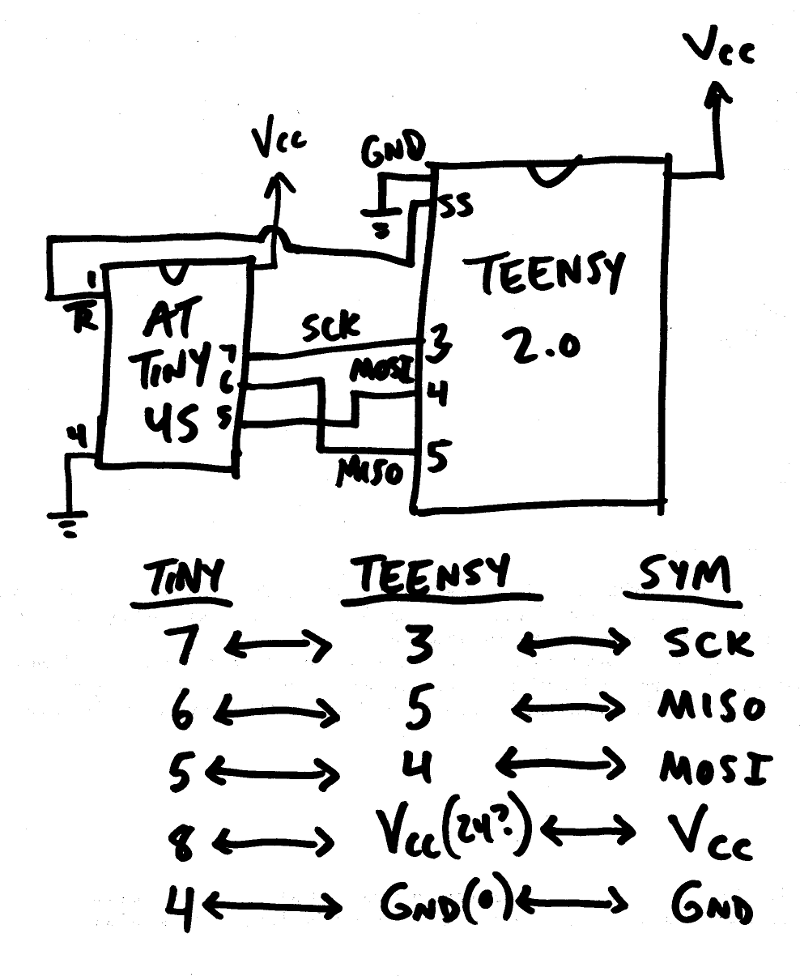 Vcc
Vcc
GND
SS
TEENSY
2.0
1
R
AT
TINY
45
7
6
5
4
SCK
MOSI
MISO
3
4
5
TINY TEENSY SYM
7 ↔ 3 ↔ SCK
6 ↔ 5 ↔ MISO
5 ↔ 4 ↔ MOSI
8 ↔ Vcc(24?) ↔ Vcc
4 ↔ GND(0) ↔ GND